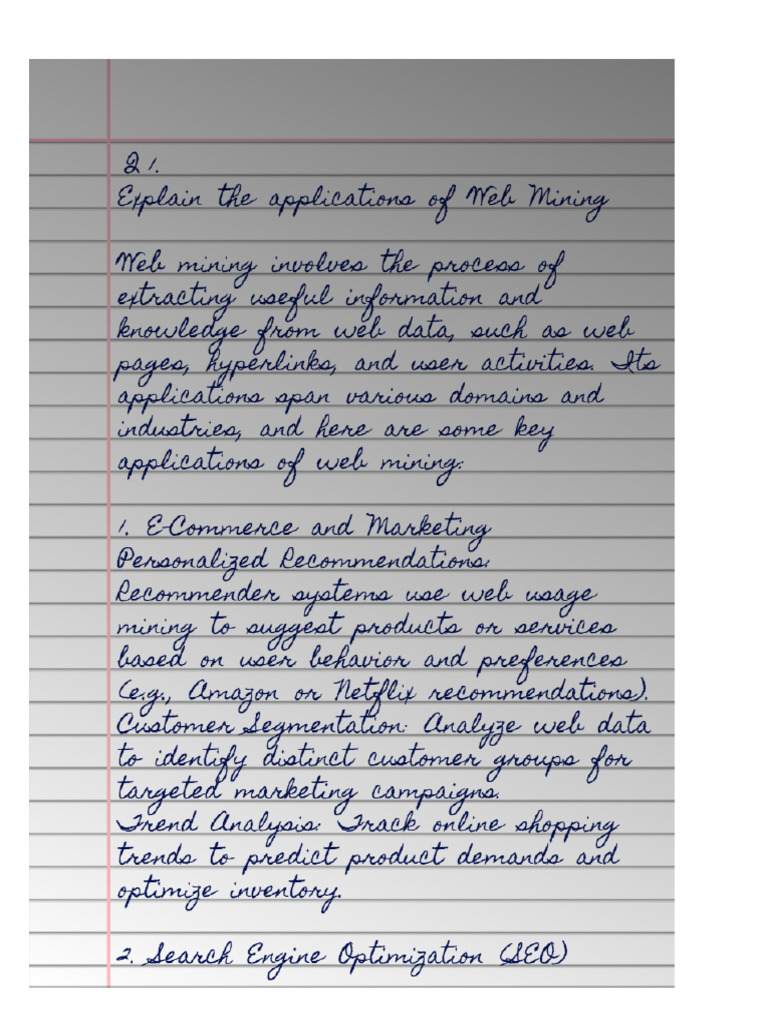 Q 1.
Explain the applications of Web Mining
Web mining involves the process of
extracting useful information and
knowledge from web data, such as web
pages, hyperlinks, and user activities. Its
applications span various domains and
industries, and here are some key
applications of web mining:
1. E-Commerce and Marketing
Personalized Recommendations:
Recommender systems use web usage
mining to suggest products or services
based on user behavior and preferences
(e.g., Amazon or Netflix recommendations).
Customer Segmentation: Analyze web data
to identify distinct customer groups for
targeted marketing campaigns.
Trend Analysis: Track online shopping
trends to predict product demands and
optimize inventory.
2. Search Engine Optimization (SEO)